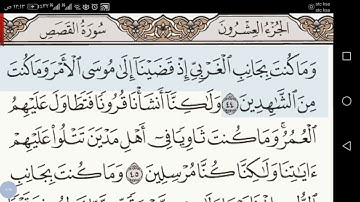 stc ksa
stc ksa
١٢:١٣ ص
الجزء العشرون سورة القصص
وَمَا كُنتَ بِجَانِبِ ٱلْغَرْبِىِّ إِذْ قَضَيْنَآ إِلَىٰ مُوسَى ٱلْأَمْرَ وَمَا كُنتَ
مِنَ ٱلشَّٰهِدِينَ ٤٤ وَلَٰكِنَّآ أَنشَأْنَا قُرُونًا فَتَطَاوَلَ عَلَيْهِمُ
ٱلْعُمُرُ ۚ وَمَا كُنتَ ثَاوِيًا فِىٓ أَهْلِ مَدْيَنَ تَتْلُوا۟ عَلَيْهِمْ
ءَايَٰتِنَا وَلَٰكِنَّا كُنَّا مُرْسِلِينَ ٤٥ وَمَا كُنتَ بِجَانِبِ